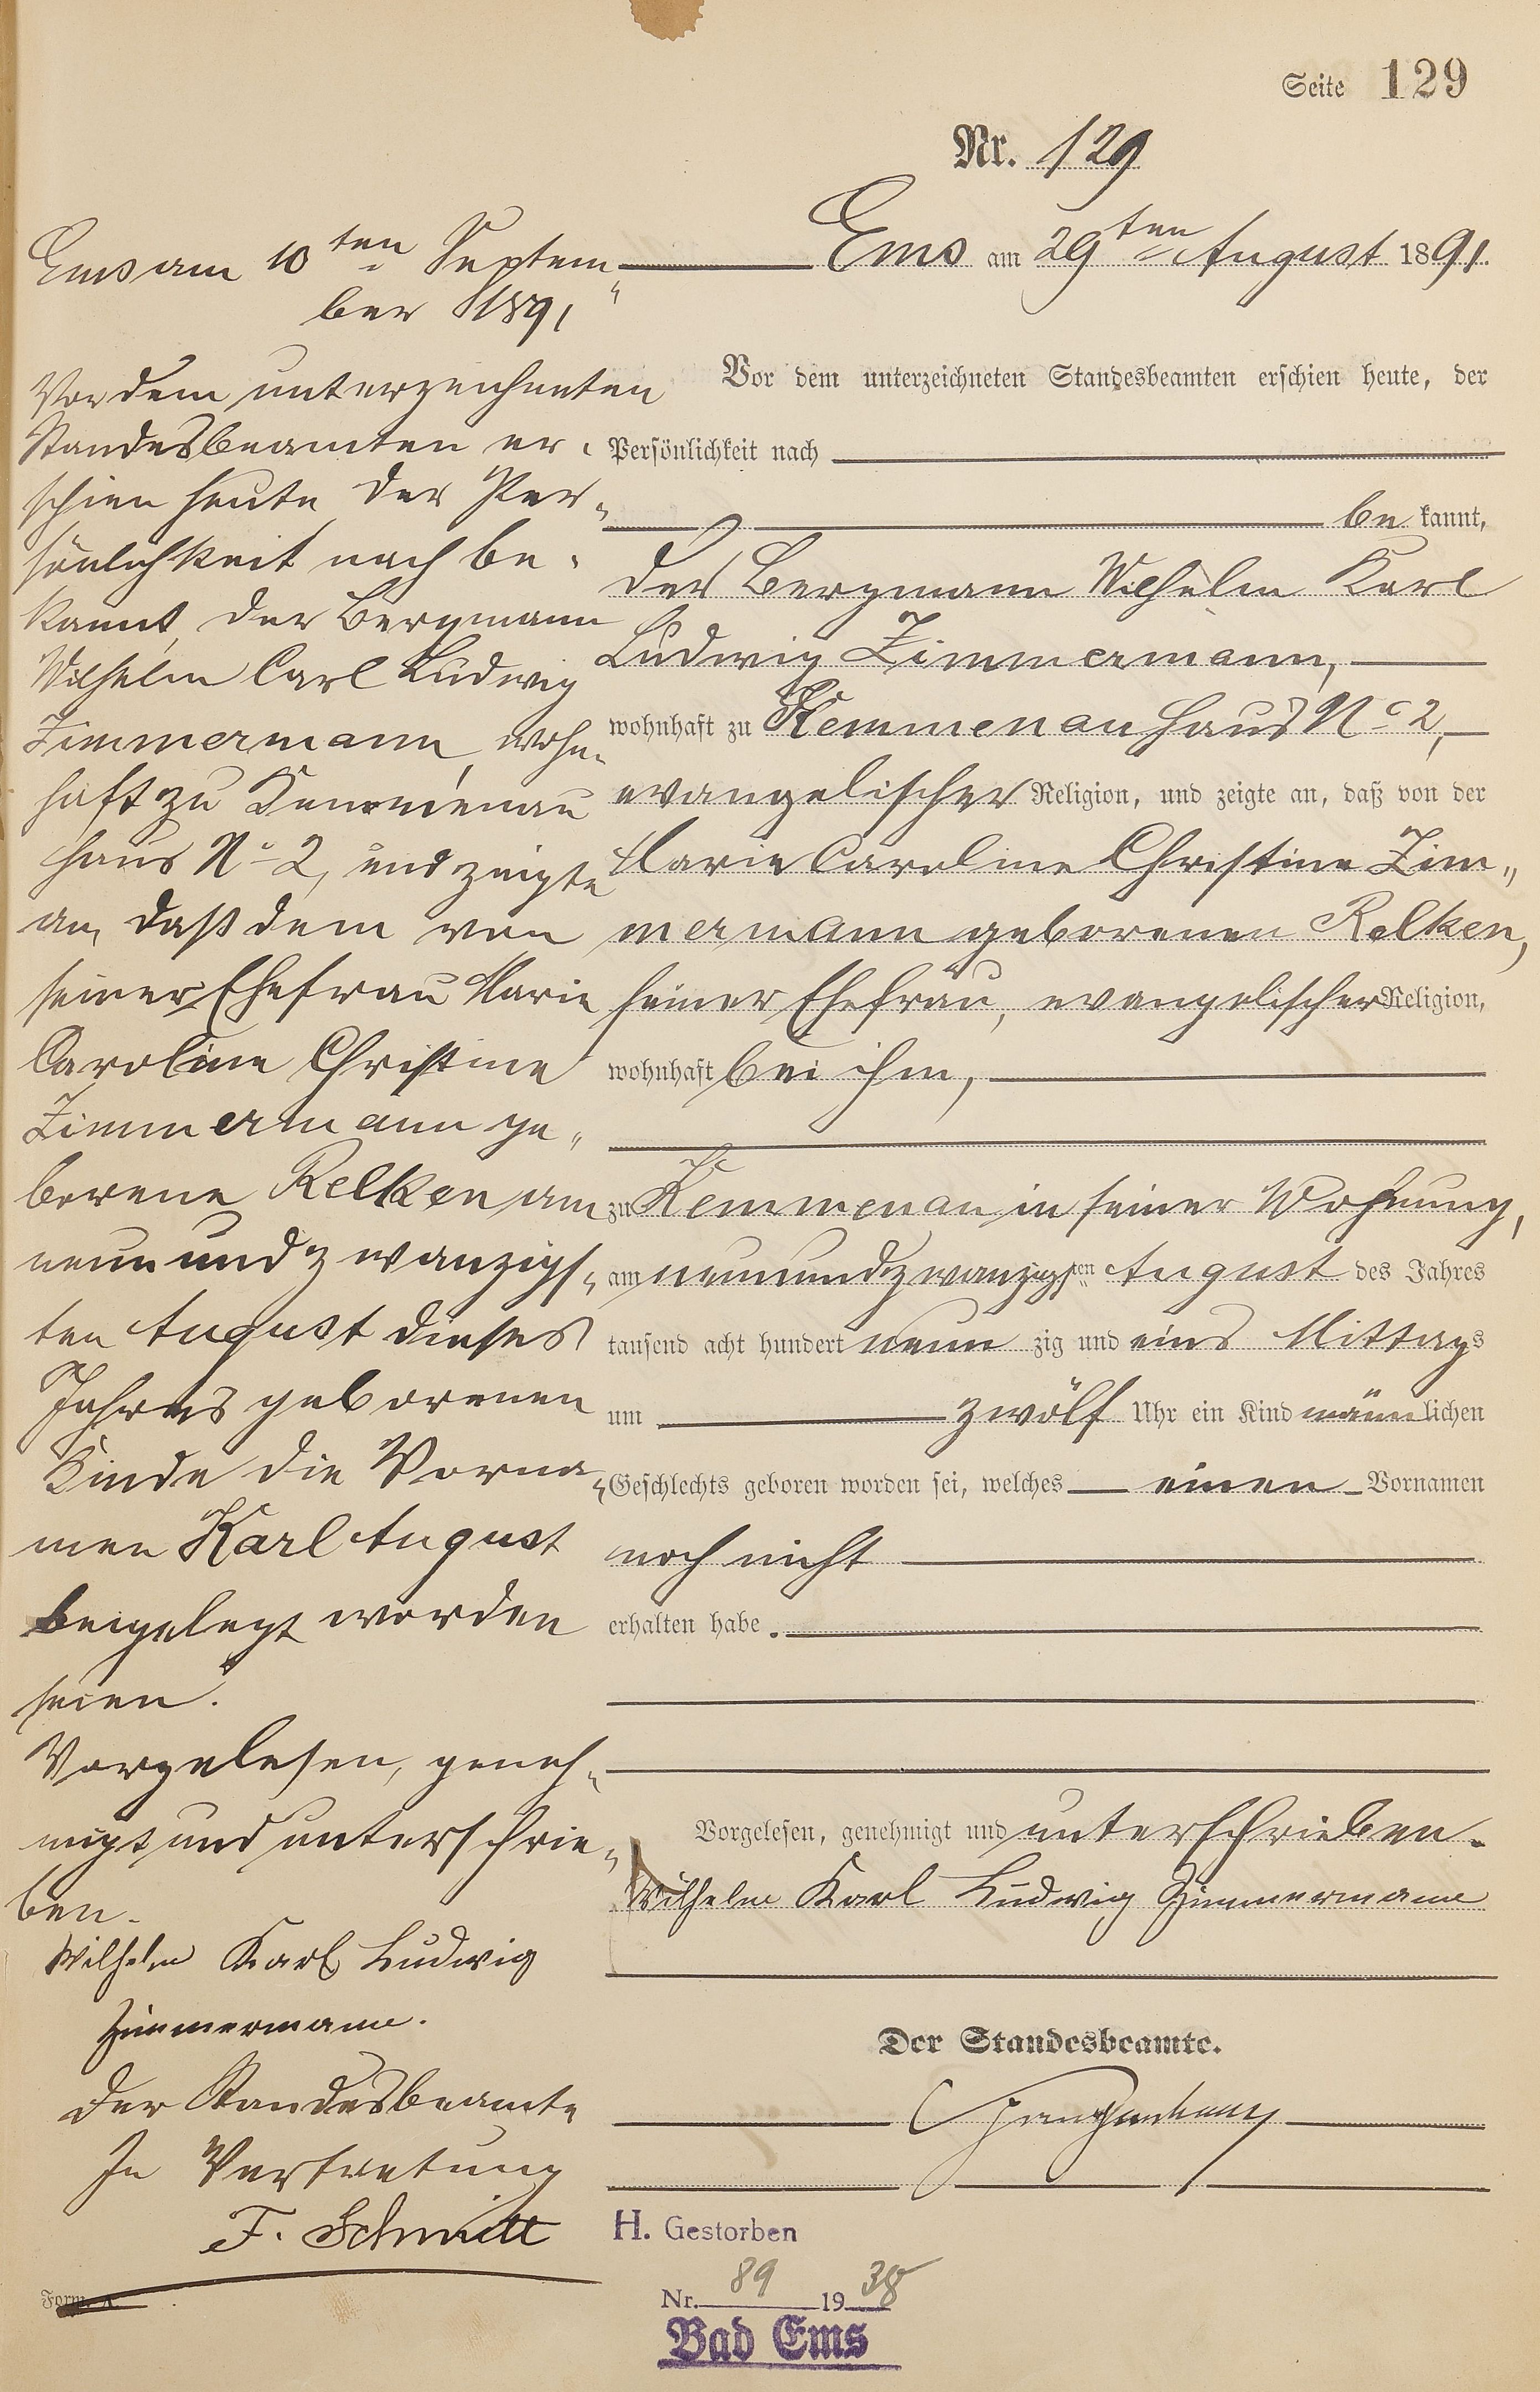 Seite 129
Nr. 129
Ems am 29ten August 1891.
Vor dem unterzeichneten Standesbeamten erschien heute, der
Persönlichkeit nach
be kannt,
der Bergmann Wilhelm Karl
Ludwig Zimmermann,
wohnhaft zu Kemmenau Haus No 2,
evangelischer Religion, und zeigte an, daß von der
Marie Caroline Christine Zim„
mermann geborenen Relken,
seiner Ehefrau, evangelischer Religion,
wohnhaft bei ihm,
zu Kemmenau in seiner Wohnung,
am neunundzwanzigsten August des Jahres
tausend acht hundert neun zig und eins Mittags
um zwölf Uhr ein Kind männlichen
Geschlechts geboren worden sei, welches einen Vornamen
noch nicht
erhalten habe.
Vorgelesen, genehmigt und unterschrieben.
Wilhelm Karl Ludwig Zimmermann
Der Standesbeamte.
Ems am 10ten Septem„
ber 1891
Vor dem unterzeichneten
Standesbeamten er„
schien heute, der Per„
sönlichkeit nach be„
kannt, der Bergmann
Wilhelm Carl Ludwig
Zimmermann, wohn„
haft zu Kemmenau
Haus No 2, und zeigte
an, daß dem von
seiner Ehefrau Marie
Caroline Christine
Zimmermann ge„
borene Relken am
neunundzwanzigs„
ten August dieses
Jahres geborenen
Kinde die Vorna„
men Karl August
beigelegt worden
seien.
Vorgelesen, geneh„
migt und unterschrie„
ben.
Wilhelm Karl Ludwig
Zimmermann.
Der Standesbeamte
In Vertretung
F. Schmitt
Form. A.
H. Gestorben
Nr. 89 1938
Bad Ems